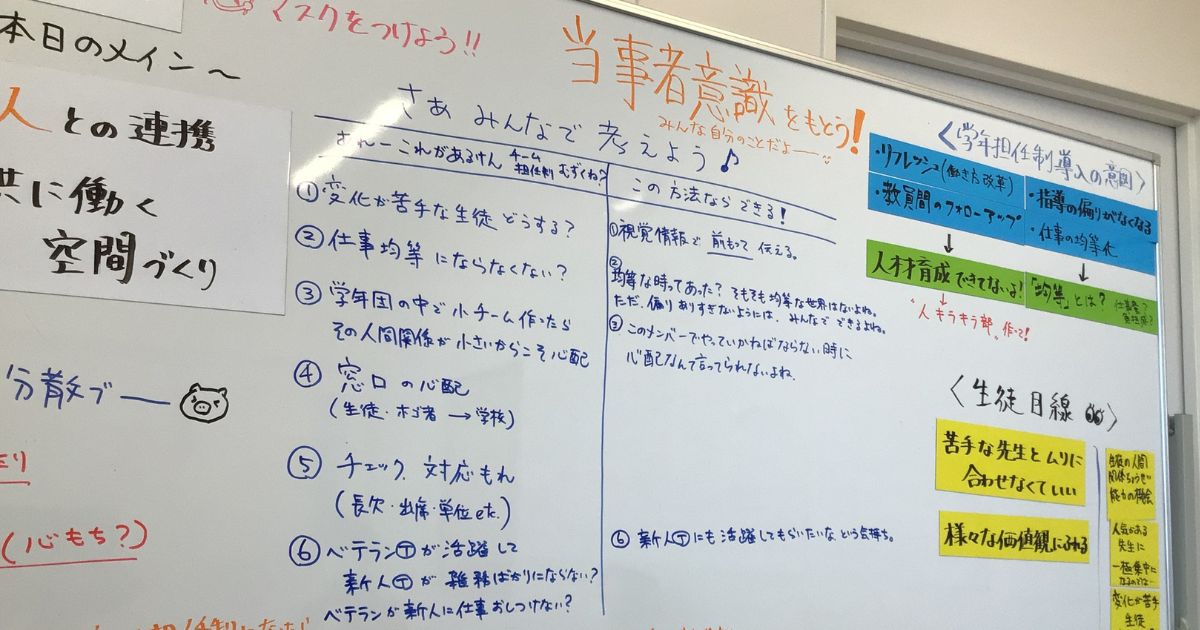 マスクをつけよう!!
本日のメイン〜
人との連携
共に働く
空間づくり
分散ブー
(心もち?)
当事者意識をもとう!
みんな自分のことだよー
さあ みんなで 考えよう♪
これがあるけん チーム担任制 むずくね?
①変化が苦手な生徒 どうする?
②仕事均等 にならなくない?
③学年団の中で小チーム作ったら
その人間関係が小さいからこそ心配
④窓口の心配
(生徒・ホゴ者→学校)
⑤チェック、対応もれ
(長欠・出席・単位etc.)
⑥ベテランⓉが活躍して
新人Ⓣが雑務ばかりにならない?
ベテランが新人に仕事おしつけない?
この方法なら できる!
①視覚情報で 前もって 伝える。
②
均等な時ってあった? そもそも均等な世界はないよね。
ただ、偏りありすぎないようには、みんなで できるよね。
③このメンバーでやっていかねばならない時に
心配なんて言ってられないよね。
⑥新人Ⓣにも活躍してもらいたいな という気持ち。
〈学年担任制導入の意図〉
・リフレッシュ(働き方改革)
・教員間のフォローアップ
・指導の偏りがなくなる
・仕事の均等化
↓
↓
人材育成できてないよ!
「均等」とは? 仕事量?
↓
"人キラキラ部"作って!
〈生徒目線〉
苦手な先生とムリに
合わせなくていい
様々な価値観にふれる
人気がある
先生に
一極集中に
変化が苦手
生徒